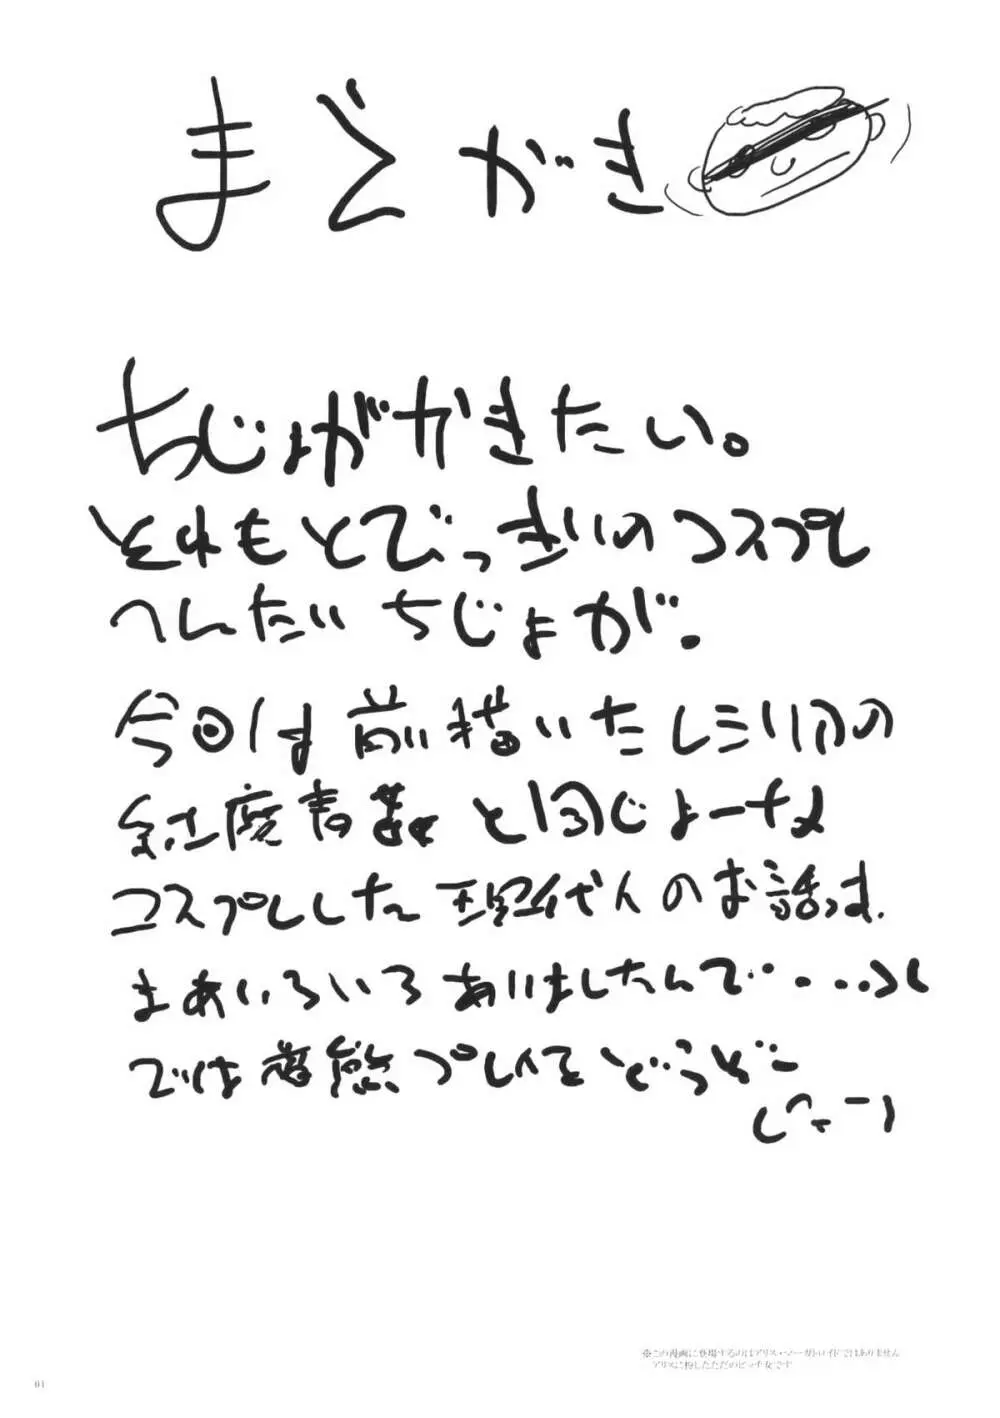 まえがき
ちじょがかきたい。
それもとびっきりのコスプレ
へんたいちじょが。
今回は前描いたレミリアの
と同じよーな
コスプレした現代人のお話っす。
まあいろいろありましたんで・・・・
では変態プレイをどうぞー
※この漫画に登場するのはアリス・マーガトロイドではありません
アリスに扮したただのビッチ女です
01